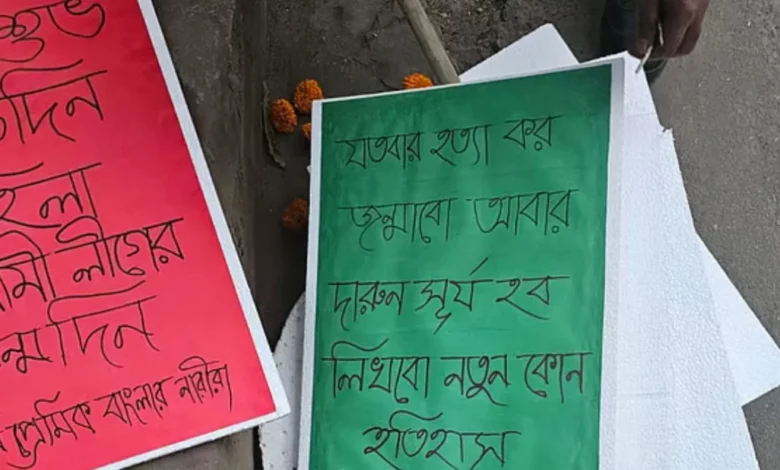 শুভ
দিন
লা
লীগের
দিন
প্রেমিক বাংলার নারীরা
যতবার হত্যা কর
জন্মাবো আবার
দারুন সূর্য হব
লিখবো নতুন কোন
ইতিহাস